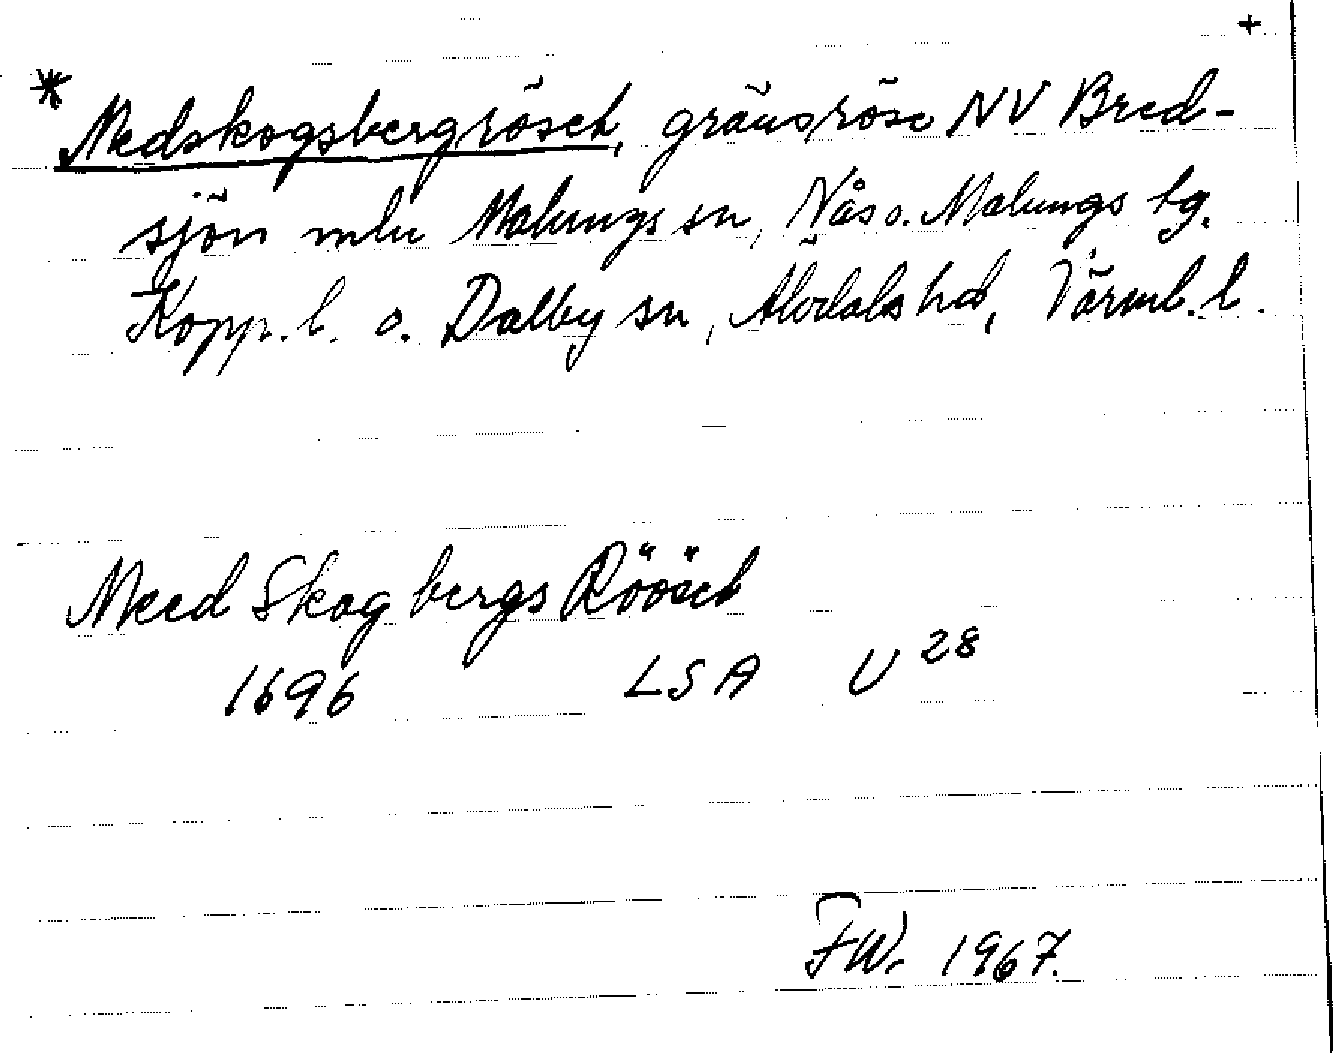 +
* Medskogsbergröset, gränsröse NV Bred-
sjön mln Malungs sn, Nås o. Malungs tg.
Kopp. l. o. Dalby sn, Älvdals hd, Värml. l.
Meed Skog bergs Röösett
1696 LSA U 28
FW. 1967.